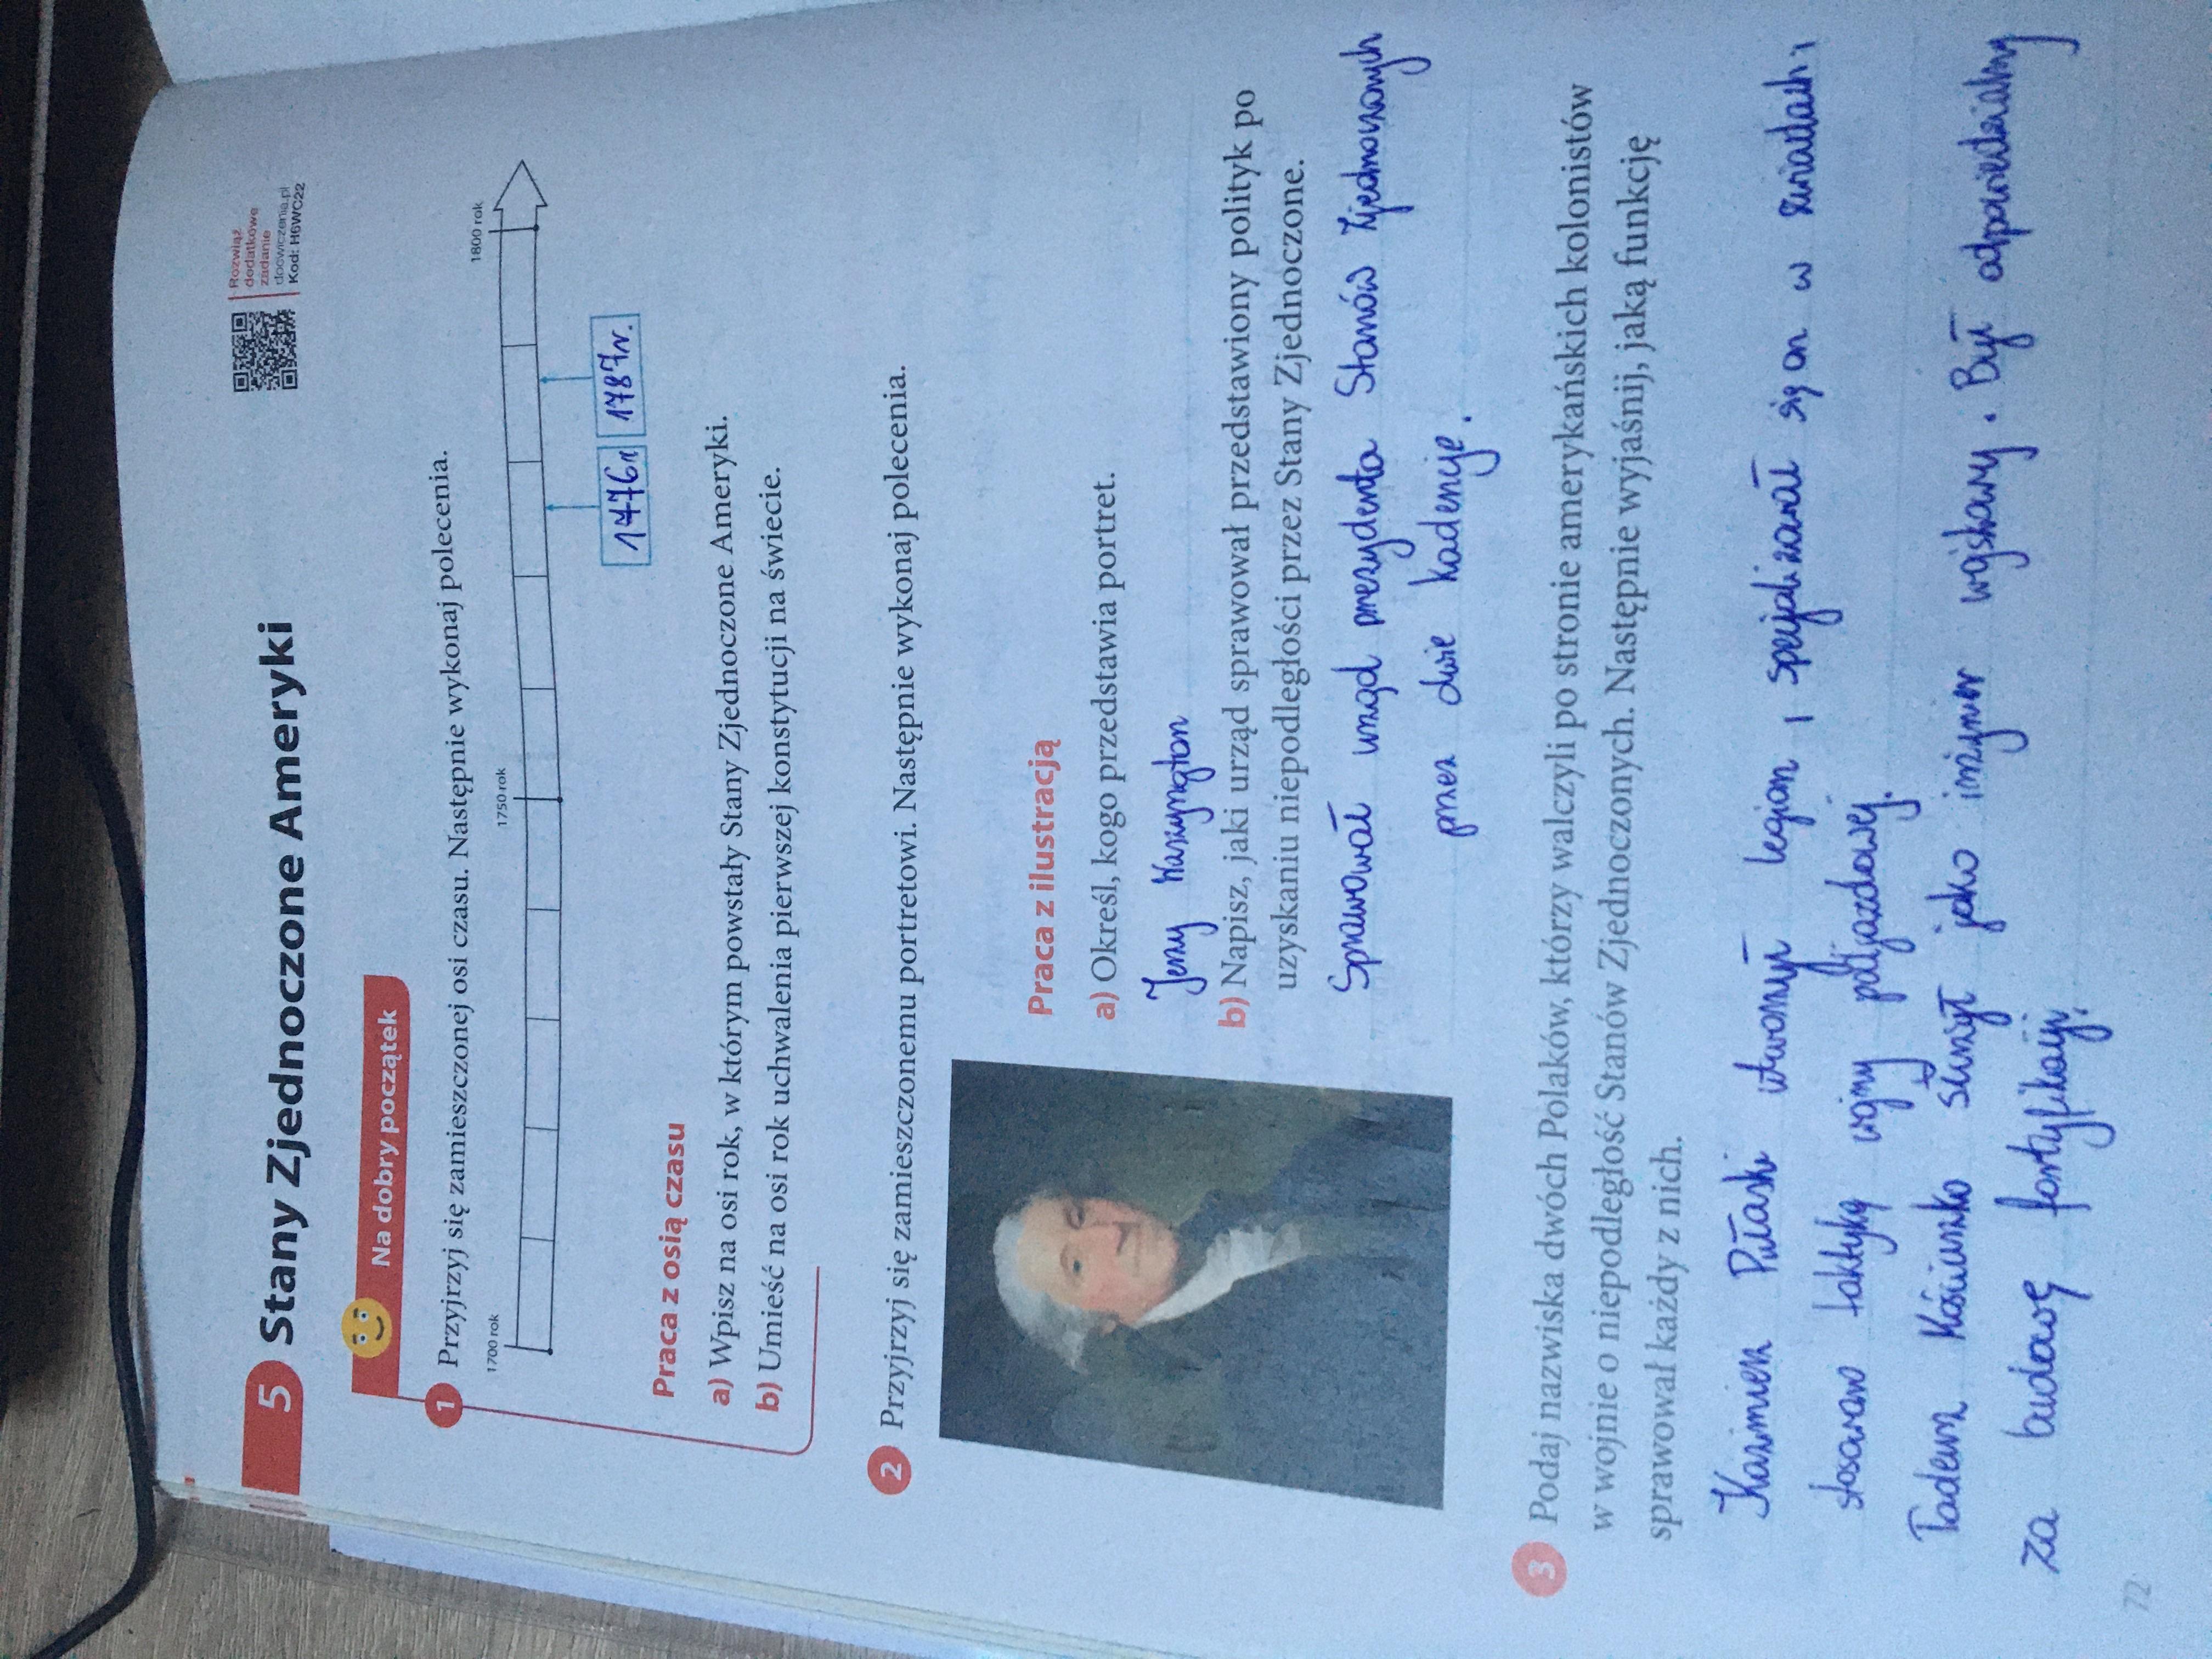 Rozwiąż
dodatkowe
zadanie
docwiczenia.pl
Kod: H6WC22
5 Stany Zjednoczone Ameryki
Na dobry początek
1 Przyjrzyj się zamieszczonej osi czasu. Następnie wykonaj polecenia.
1700 rok 1750 rok 1800 rok
1776r 1787r.
Praca z osią czasu
a) Wpisz na osi rok, w którym powstały Stany Zjednoczone Ameryki.
b) Umieść na osi rok uchwalenia pierwszej konstytucji na świecie.
2 Przyjrzyj się zamieszczonemu portretowi. Następnie wykonaj polecenia.
Praca z ilustracją
a) Określ, kogo przedstawia portret.
Jerzy Waszyngton
b) Napisz, jaki urząd sprawował przedstawiony polityk po
uzyskaniu niepodległości przez Stany Zjednoczone.
Sprawował urząd prezydenta Stanów Zjednoczonych
przez dwie kadencje.
3 Podaj nazwiska dwóch Polaków, którzy walczyli po stronie amerykańskich kolonistów
w wojnie o niepodległość Stanów Zjednoczonych. Następnie wyjaśnij, jaką funkcję
sprawował każdy z nich.
Kazimierz Pułaski utworzył legion, specjalizował się on w zwiadach i
stosowano taktykę wojny podjazdowej.
Tadeusz Kościuszko służył jako inżynier wojskowy. Był odpowiedzialny
za budowę fortyfikacji.
72